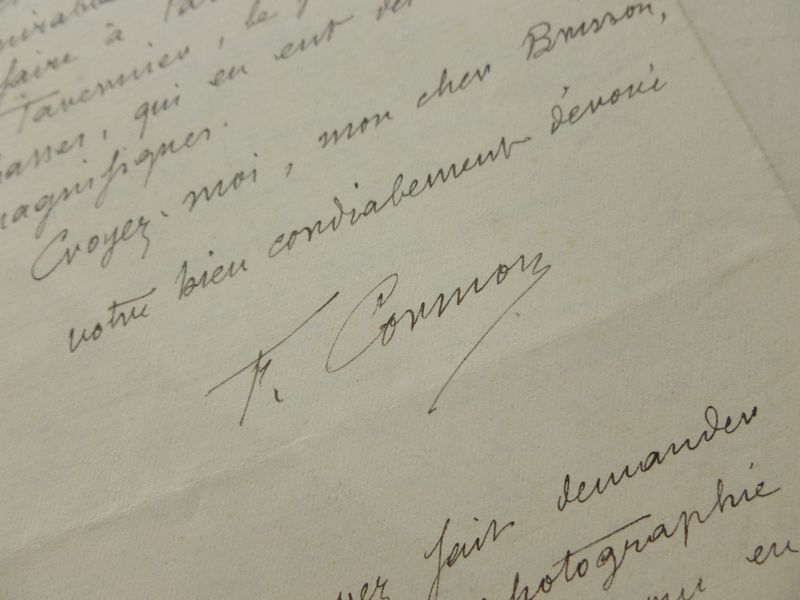 faire à
Tavernier, le
chasses, qui en ont des
magnifiques.
Croyez-moi, mon cher Brisson,
votre bien cordialement dévoué
F. Cormon
fait demander
photographie
en